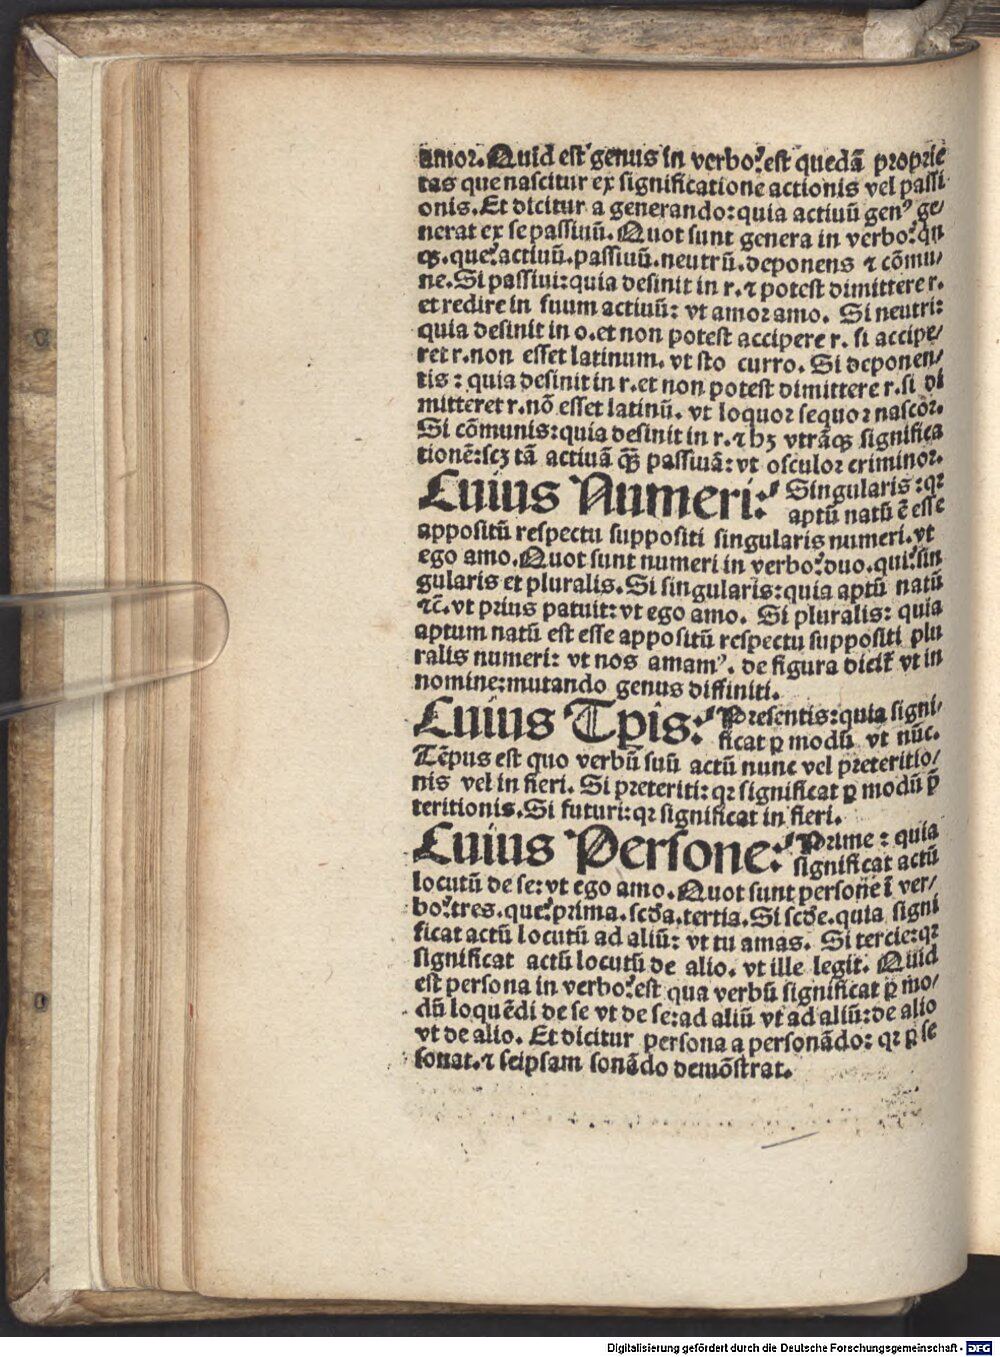 amor. Quid est genus in verbo? est quedā proprie
tas que nascitur ex significatione actionis vel passi
onis. Et dicitur a generando: quia actiuū gen⁹ ge/
nerat ex se passiuū. Quot sunt genera in verbo? qn
qꝫ. que? actiuū. passiuū. neutrū. deponens ⁊ cōmu/
ne. Si passiui: quia desinit in r. ⁊ potest dimittere r.
et redire in suum actiuū: vt amor amo. Si neutri:
quia desinit in o. et non potest accipere r. si accipe/
ret r. non esset latinum. vt sto curro. Si deponen/
tis: quia desinit in r. et non potest dimittere r. si di
mitteret r. nō esset latinū. vt loquor sequor nascor.
Si cōmunis: quia desinit in r. ⁊ hꝫ vtrāqꝫ significa
tionē: scꝫ tā actiuā qꝫ̄ passiuā: vt osculor criminor.
Cuius Numeri: Singularis: qꝛ
aptū natū ē esse
appositū respectu suppositi singularis numeri. vt
ego amo. Quot sunt numeri in verbo? duo. qui? sin
gularis et pluralis. Si singularis: quia aptū natū
⁊c̄. vt prius patuit: vt ego amo. Si pluralis: quia
aptum natū est esse appositū respectu suppositi plu
ralis numeri: vt nos amam⁹. de figura dicit̄ vt in
nomine: mutando genus diffiniti.
Cuius Tꝑis: Presentis: quia signi/
ficat ꝑ modū vt nūc.
Tēpus est quo verbū suū actū nunc vel preteritio/
nis vel in fieri. Si preteriti: qꝛ significat ꝑ modū p̄
teritionis. Si futuri: qꝛ significat in fieri.
Cuius Persone: Prime: quia
significat actū
locutū de se: vt ego amo. Quot sunt persone ī ver/
bo? tres. que? prima. scd̄a. tertia. Si scd̄e. quia signi
ficat actū locutū ad aliū: vt tu amas. Si tercie: qꝛ
significat actū locutū de alio. vt ille legit. Quid
est persona in verbo? est qua verbū significat ꝑ mo/
dū loquēdi de se vt de se: ad aliū vt ad aliū: de alio
vt de alio. Et dicitur persona a personādo: qꝛ ꝑ se
sonat. ⁊ seipsam sonādo demōstrat.
Digitalisierung gefördert durch die Deutsche Forschungsgemeinschaft - DFG